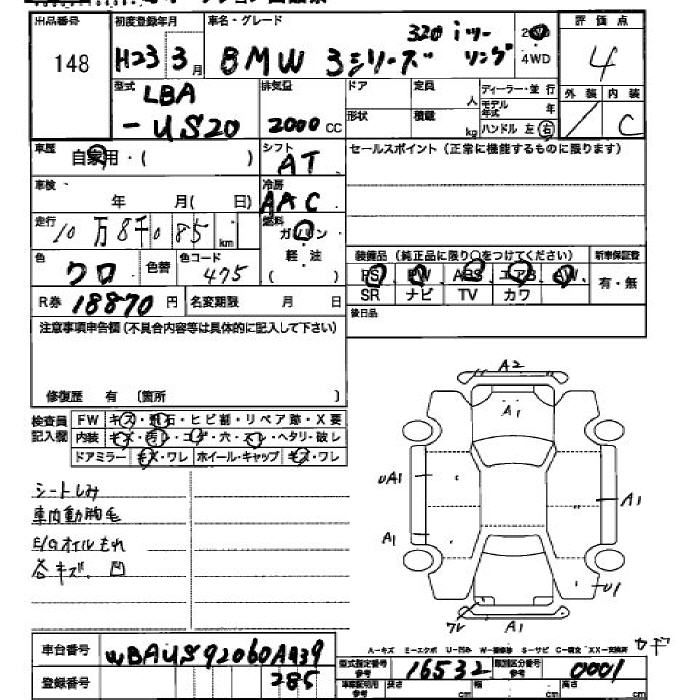 出品番号 初度登録年月 車名・グレード 320 iツー 評価点
148 H23 3月 BMW 3シリーズ リング 4WD 4
型式 LBA 排気量 ドア 定員 人 ディーラー・並行 外装 内装
-US20 2000CC 形状 積載 kg モデル年式 年 C
ハンドル 左 右
車歴 自家用・( ) シフト AT セールスポイント(正常に機能するものに限ります)
車検 年 月( 日) 冷房 AAC
走行 10万8千085km 燃料 ガソリン
色 クロ 色替 色コード 475 軽・油 ( ) 装備品(純正品に限り〇をつけてください) 新車保証書
PS PW ABS エアB AW 有・無
R券 18870円 名変期限 月 日 SR ナビ TV カワ
注意事項申告欄(不具合内容等は具体的に記入して下さい) 後日品
修復歴 有 〔箇所 〕
検査員記入欄 FW キズ・飛石・ヒビ割・リペア跡・X要
内装 キズ・汚レ・コゲ・穴・スレ・ヘタリ・破レ
ドアミラー キズ・ワレ ホイール・キャップ キズ・ワレ
シートしみ
車内動胸毛
E/Gオイルもれ
各キズ、凹
A2
A1
UA1
A1
A1
U1
ワレ A1
A-キズ E-エクボ U-凹み W-補修跡 S-サビ C-腐食 XX-交換済
車台番号 WBAUS92060A939
285
登録番号
型式指定番号 参考 16532 類別区分番号 参考 0001
車庫証明用 参考 長さ cm 幅 cm 高さ cm